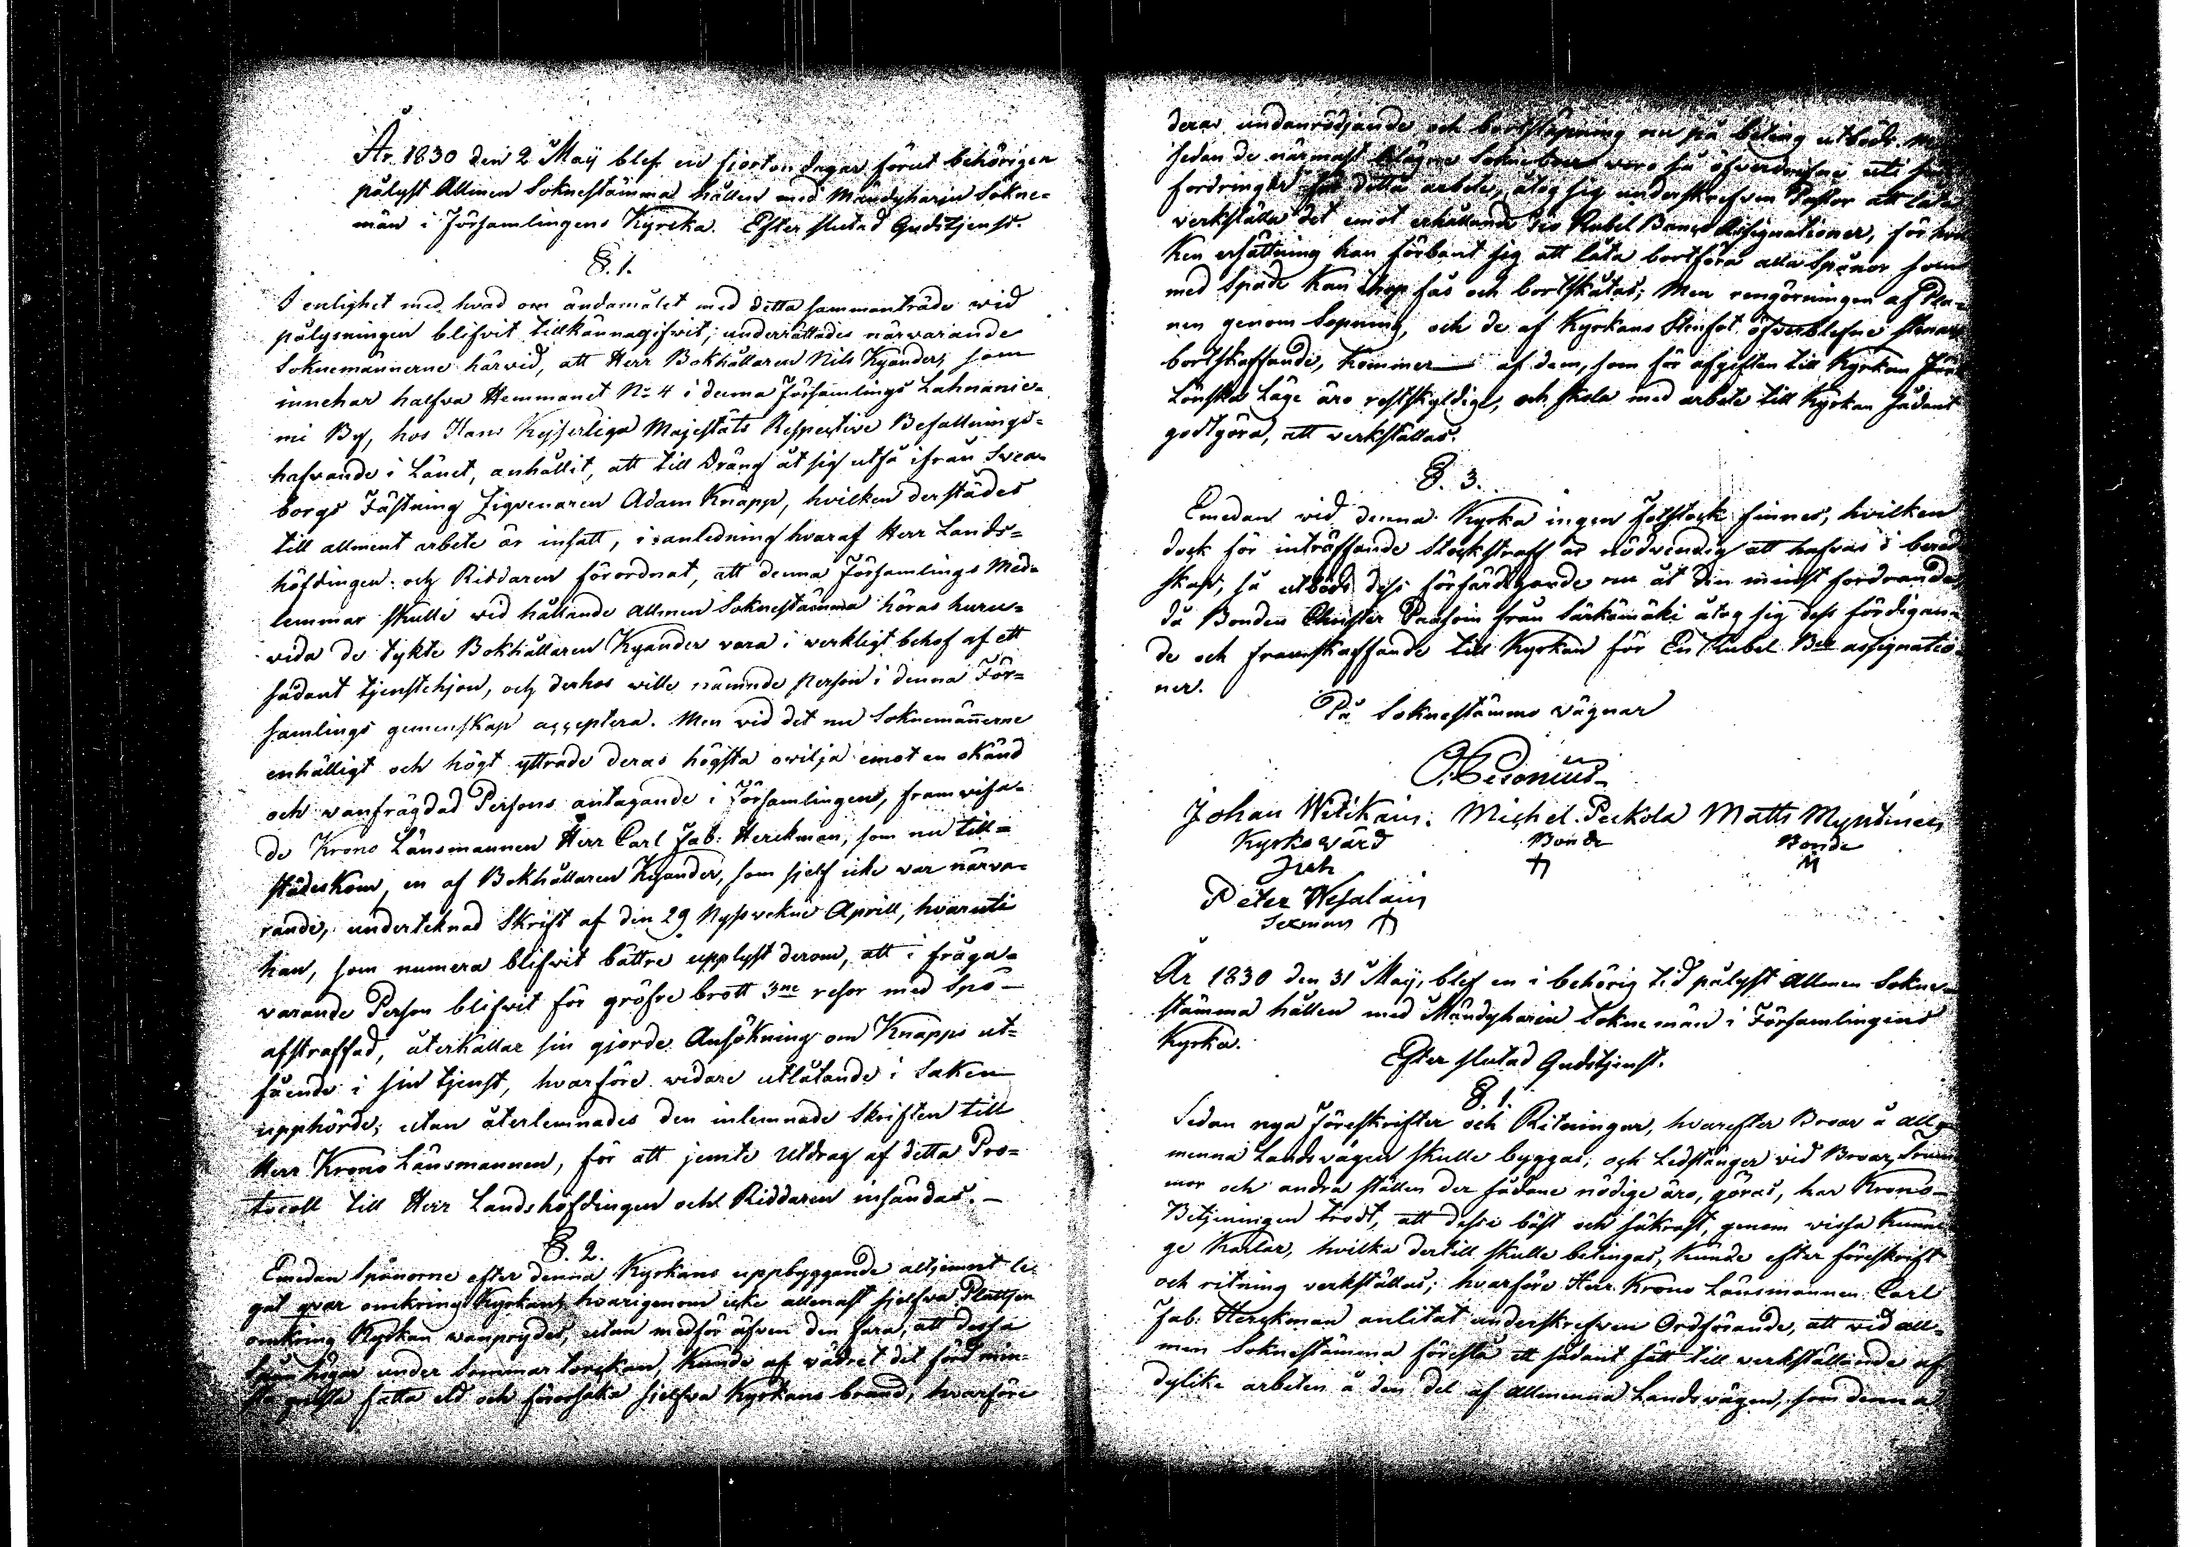 År 1830 den 2 Maij blef en fjorton dagar förut behörigen
pålyst Allmen Soknestämma hållen med Mändyharju Sokne-
män i Församlingens Kyrcka. Efter slutad Gudstjenst.
§. 1.
I enlighet med hvad om ändamålet med detta sammanträde vid
pålysningen blifvit tillkännagifvit, underrättades närvarande
Soknemännerne härvid, att Herr Bokhållaren Nils Kyander, som
innehar halfva Hemmanet No 4 i denna Församlings Lahnanie-
mi By, hos Hans Kejserliga Majestäts Respective Befallnings-
hafvande i Länet, anhållit, att till dräng åt sig utfå ifrån Svea-
borgs Fästning Zigenaren Adam Knapp, hvilken derstädes
till allment arbete är insatt, i anledning hvaraf Herr Lands-
höfdingen och Riddaren förordnat, att denna Församlings Med-
lemmar skulle vid hållande allmen Soknestämma höras huru-
vida de tykte Bokhållaren Kyander vara i verkligt behof af ett
sådant tjenstehjon, och derhos ville nämnde person i denna För-
samlings gemenskap acceptera. Men vid det nu Soknemännerne
enhälligt och högt yttrade deras högsta ovilja emot en okänd
och vanfrägdad Persons antagande i Församlingen, framvisa-
de Krono Länsmannen Herr Carl Jab: Herckman, som nu till-
städeskom, en af Bokhållaren Kyander, som sjelf icke var närva-
rande, underteknad Skrift af den 29 Nyssvekne Aprill, hvaruti
han, som numera blifvit bättre upplyst derom, att i fråga-
varande Person blifvit för gröfre brott 3ne resor med Spö-
afstraffad, återkallar sin gjorde Ansökning om Knapps ut-
fående i sin tjenst, hvarföre vidare utlåtande i Saken
upphörde, utan återlemnades den inlemnade Skriften till
Herr Krono Länsmannen, för att jemte Utdrag af detta Pro-
tocoll till Herr Landshöfdingen och Riddaren insändas.-
§. 2.
Emedan Spånorne efter denna Kyrkans uppbyggande alljemnt le-
gat qvar omkring Kyrkan, hvarigenom icke allenast sjelfva Plattsen
omkring Kyrkan vanprydes, utan medför äfven den fara, att dessa
Spånhögar under Sommar torckan, kunde af vådret det förd min-
sta gnista fatta eld och förorsaka sjelfva Kyrkans brand, hvarföre
deras undanrödjande och bortsläpning nu på beting utböds. Men
sedan de närmast belägne Sokneboer voro så öfverdrifne uti sin
fordringar för detta arbete, åtog sig underskrefven Pastor att låta
verkställa det emot erhållande Tio Rubel Banco Assignationer, för hvil-
ken ersättning han förbant sig att låta bortföra alla Spånor som
med Spade kan ihop fås och bortskåtas; Men rengörningen af Pla-
nen genom Sopning, och de af Kyrkans Stenfot öfverblefne stenars
bortskaffande, kommer — af dem, som för afgiften till Kyrkan
Lönska Läge äro restskyldige, och skola med arbete till Kyrkan sådant
godtgöra, att verkställas.
§. 3.
Emedan vid denna Kyrka ingen fotstock finnes, hvilken
dock för inträffande Stockstraff är nödvendig att hafvas i bered-
skap, så utböds dess förfärdigande nu åt den minst fordrande,
då Bonden Christer Paasoin från Särkämäki åtog sig dess färdigan-
de och framskaffande till Kyrkan för En Rubel Bco assignatio-
ner.
På Soknestämmo vägnar
O. Cesonius
Johan Witikain. Michel Peckola Matts Myntinen
Kyrkovärd Bonde Bonde
Peter Wesalain
Sexman
År 1830 den 31 Maij, blef en i behörig tid pålyst Allmen Sokne-
stämma hållen med Mändyharju Soknemän i Församlingens
Kyrka.
Efter slutad Gudstjenst.
§. 1.
Sedan nya Föreskrifter och Ritningar, hvarefter Broar å all-
menna Landsvägen skulle byggas, och Ledstänger vid Broar, Trum-
mor och andra ställen der sådane nödige äro, göras, har Krono-
Betjeningen trodt, att desse bäst och säkrast, genom vissa kunni-
ge Karlar, hvilka dertill skulle betingas, kunde efter föreskrift
och ritning verkställas; hvarföre Herr Krono Länsmannen Carl
Jab: Herckman anlitat underskrefven Ordförande, att vid all-
men Soknestämma föreslå ett sådant sätt till verkställande af
dylike arbeten å den del af Allmenna Landsvägen, som denna